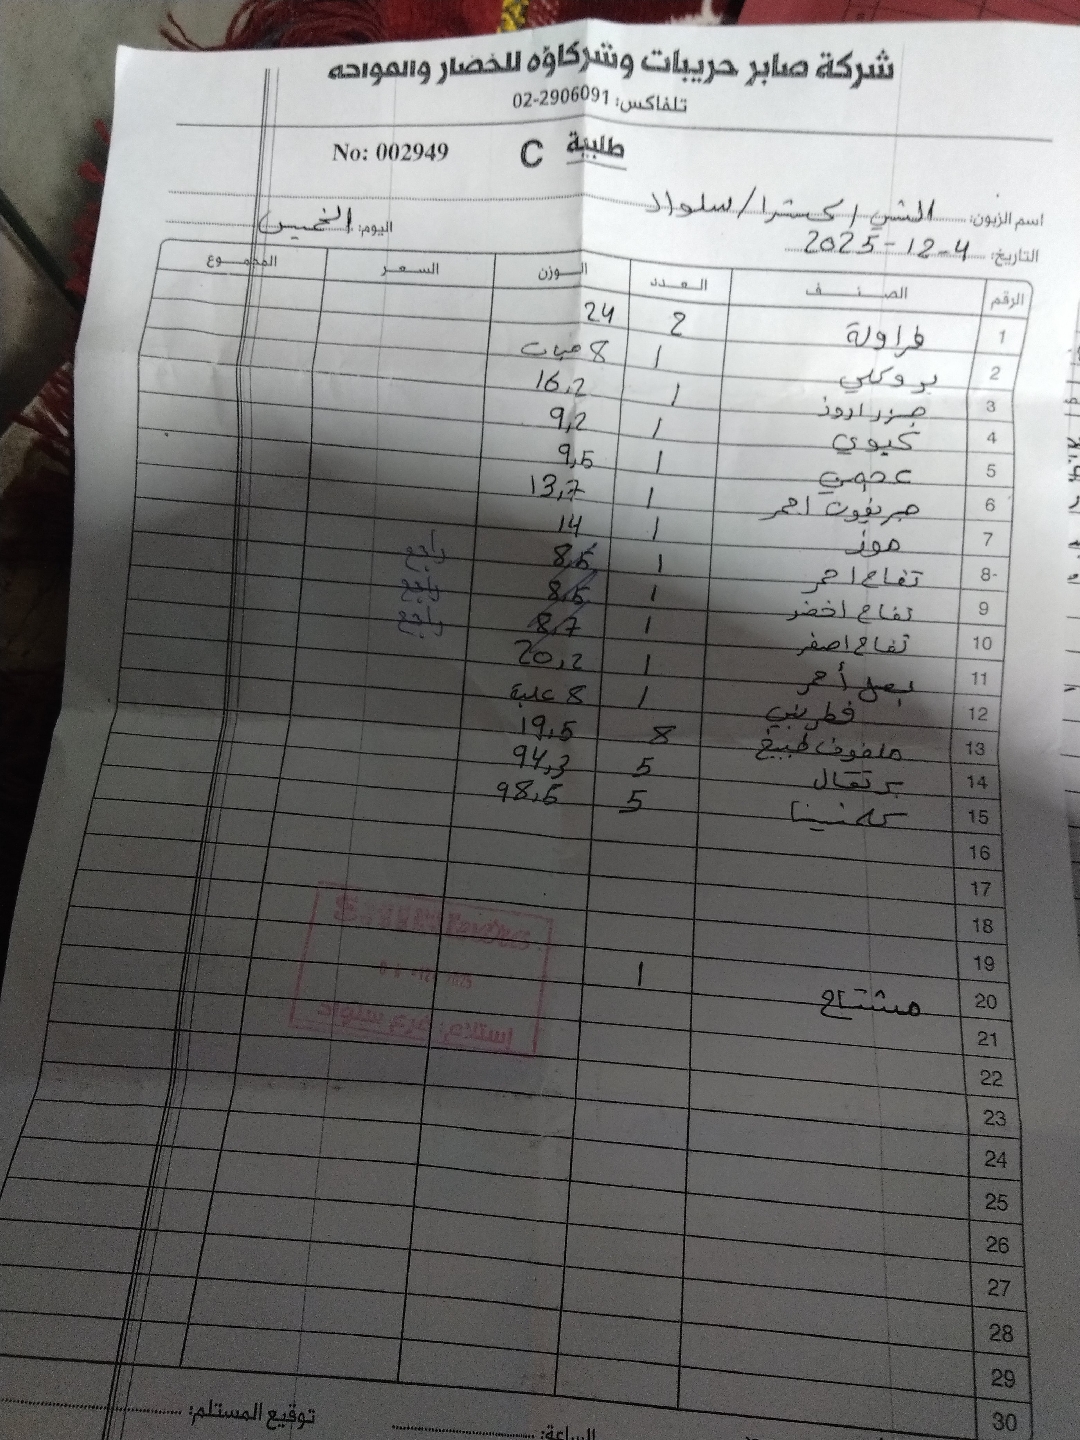 شركة صابر حريبات وشركاؤه للخضار والفواكه
تلفاكس: 02-2906091
طلبية C No: 002949
اسم الزبون: الشني اكسترا/سلواد
التاريخ: 4-12-2025 اليوم: الخميس
الرقم الصنف العدد الوزن السعر المجموع
1 فراولة 2 24
2 بروكلي 1 8 حبات
3 جزر اروز 1 16,2
4 كيوي 1 9,2
5 1 9,5
6 جريفوت احمر 1 13,7
7 موز 1 14
8- تفاح احمر 1 8,5 راجع
9 تفاح اخضر 1 8,5 راجع
10 تفاح اصفر 1 8,7 راجع
11 بصل أحمر 1 20,2
12 فطر بني 1 8 علبة
13 ملفوف طبيخ 8 19,5
14 برتقال 5 94,3
15 كلمنتينا 5 98,5
16
17
18
19
20 مشتاح 1
21
22
23
24
25
26
27
28
29
30
استلام فرع سلواد
الساعة: توقيع المستلم: